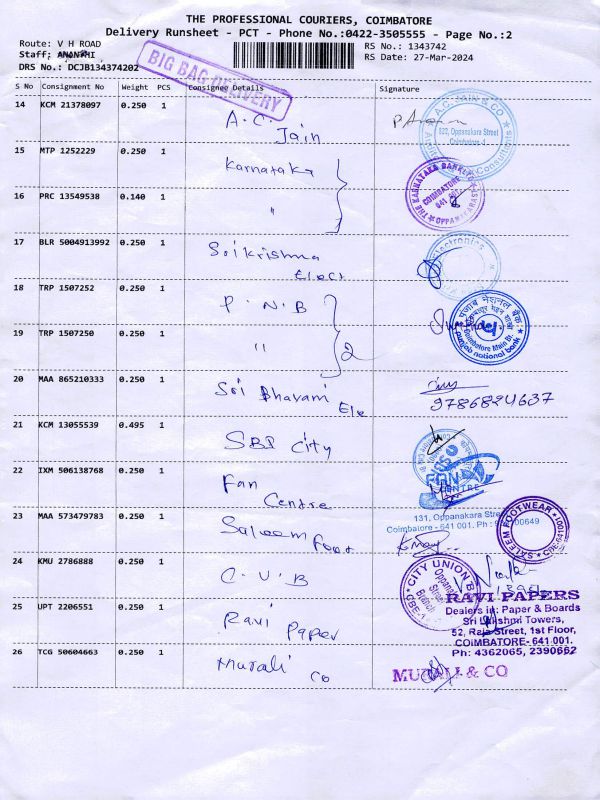 THE PROFESSIONAL COURIERS, COIMBATORE
Delivery Runsheet - PCT - Phone No.:0422-3505555 - Page No.:2
Route: V H ROAD
RS No.: 1343742
Staff: ANANTHI
RS Date: 27-Mar-2024
DRS No.: DCJB134374202
BIG BAG DELIVERY
S No Consignment No Weight PCS Consignee Details Signature
14 KCM 21378097 0.250 1 A.C. Jain
A.C. JAIN & CO
522, Oppanakara Street
Coimbatore-1
Consultants
15 MTP 1252229 0.250 1 Karnataka
THE KARNATAKA BANK LTD
COIMBATORE
641 001
16 PRC 13549538 0.140 1 "
17 BLR 5004913992 0.250 1 Sri Krishna Elect
Electronics
18 TRP 1507252 0.250 1 P.N.B
पंजाब नैशनल बैंक
Coimbatore Main Br.
punjab national bank
19 TRP 1507250 0.250 1 " 2
20 MAA 865210333 0.250 1 Sri Bhavani Ele
9786824637
21 KCM 13055539 0.495 1 SBI City
22 IXM 506138768 0.250 1 Fan Centre
FAN
CENTRE
131, Oppanakara Street
Coimbatore - 641 001. Ph :
23 MAA 573479783 0.250 1 Saleem Foot
SALEEM FOOTWEAR
CBE-641 001
24 KMU 2786888 0.250 1 C.U.B
CITY UNION B
Oppanakara
Street
Branch
CBE-1
25 UPT 2206551 0.250 1 Ravi Paper
RAVI PAPERS
Dealers in: Paper & Boards
Sri Lakshmi Towers,
52, Raja Street, 1st Floor,
COIMBATORE- 641 001.
Ph: 4362065, 2390662
26 TCG 50604663 0.250 1 Murali Co
MURALI & CO